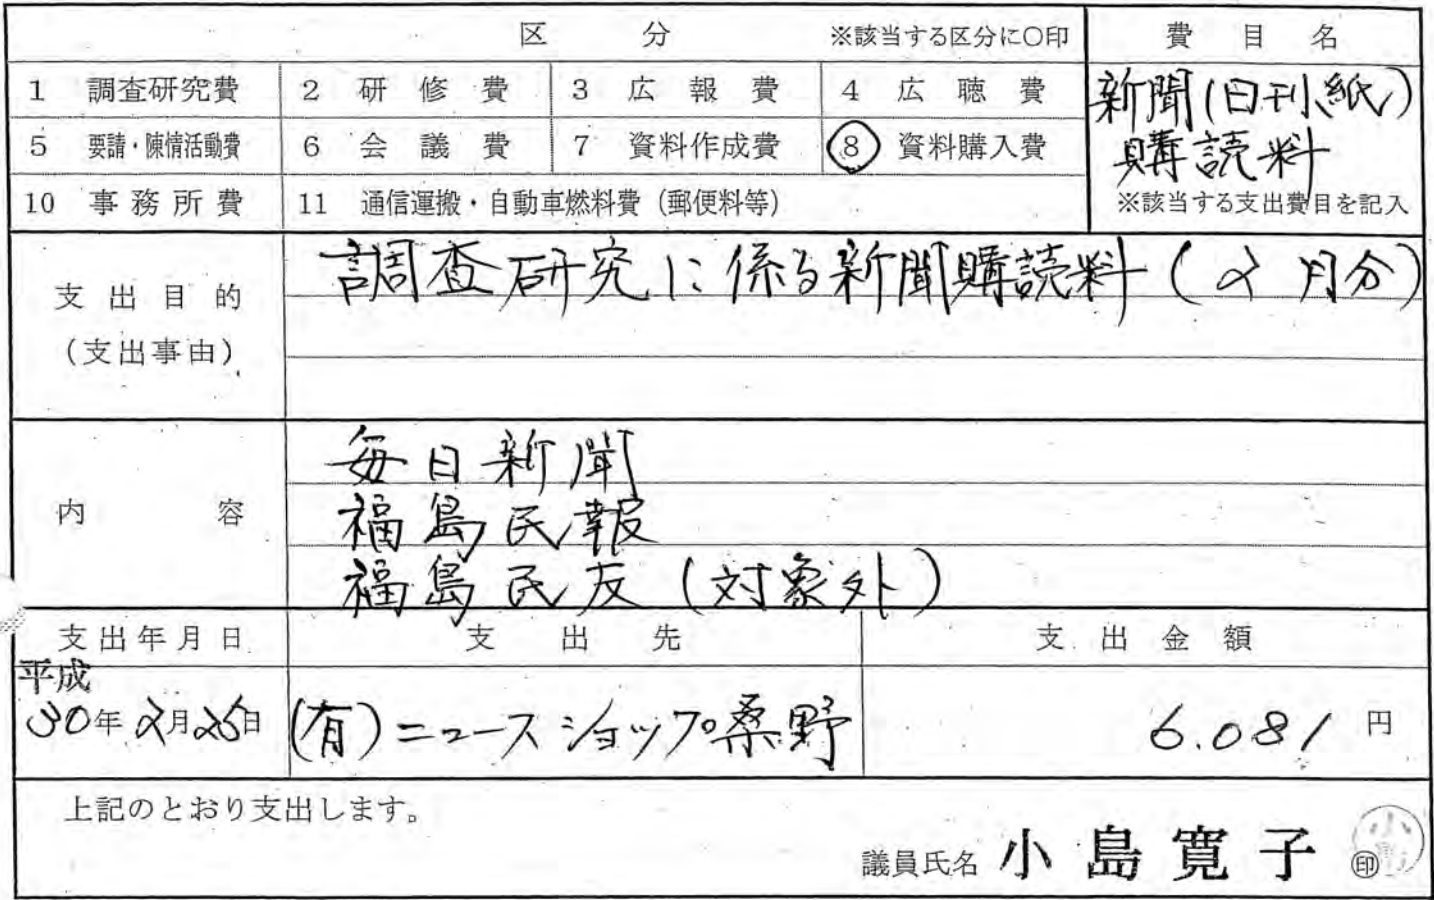 区 分 ※該当する区分に○印 費目名
1 調査研究費 2 研修費 3 広報費 4 広聴費 新聞(日刊紙)
5 要請・陳情活動費 6 会議費 7 資料作成費 8 資料購入費 購読料
10 事務所費 11 通信運搬・自動車燃料費(郵便料等) ※該当する支出費目を記入
支出目的 調査研究に係る新聞購読料(2月分)
(支出事由)
毎日新聞
内容 福島民報
福島民友(対象外)
支出年月日 支出先 支出金額
平成
30年2月25日 (有)ニュースショップ桑野 6.081円
上記のとおり支出します。
議員氏名 小島寛子 印